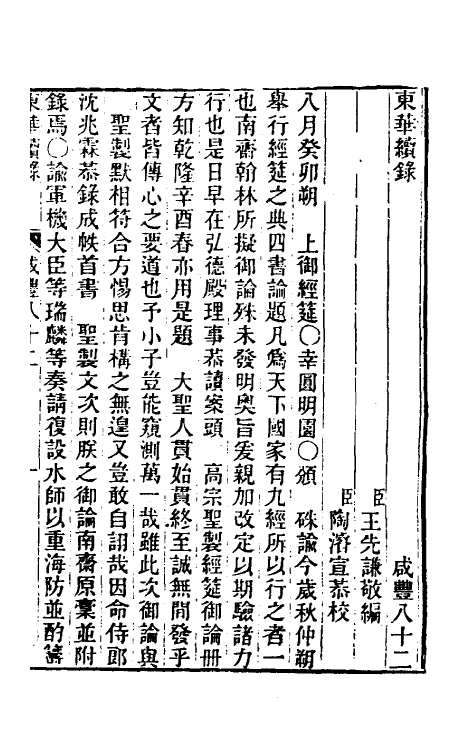 東華續錄 咸豐八十二
臣王先謙敬編
臣陶濬宣恭校
八月癸卯朔 上御經筵〇幸圓明園〇頒 硃諭今歲秋仲朔
舉行經筵之典四書論題凡爲天下國家有九經所以行之者一
也南齋翰林所擬御論殊未發明奧旨爰親加改定以期驗諸力
行也是日早在弘德殿理事恭讀案頭 高宗聖製經筵御論冊
方知乾隆辛酉春亦用是題 大聖人貫始貫終至誠無間發乎
文者皆傳心之要道也予小子豈能窺測萬一哉雖此次御論與
聖製默相符合方惕思肯構之無遑又豈敢自詡哉因命侍郎
沈兆霖恭錄成帙首書 聖製文次則朕之御論南齋原稾並附
錄焉〇諭軍機大臣等瑞麟等奏請復設水師以重海防並酌籌
東華續錄 咸豐八十二 一